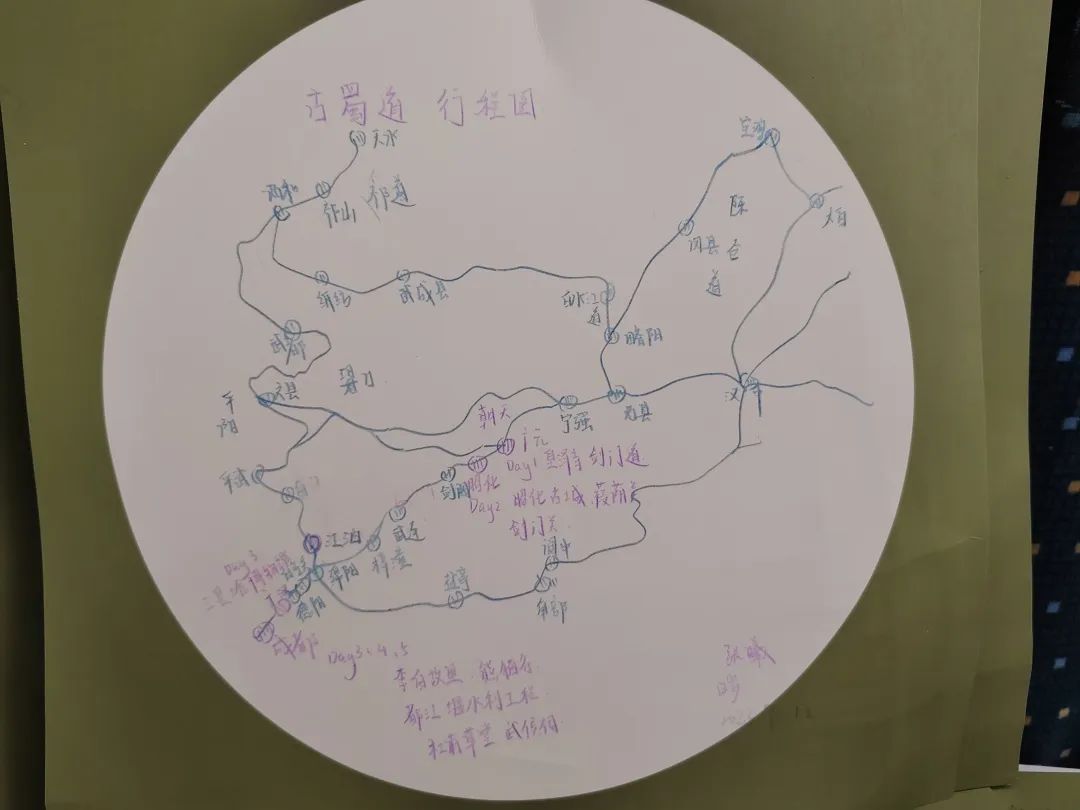 古蜀道 行程图
天水
宝鸡
西和
祁山
祁道
陈仓道
眉
凤县
成县
武都
略阳
文县
阴平
汉中
朝天
宁强
勉县
广元
Day1 皇泽寺 剑门道
平武
剑阁
昭化
Day2 昭化古城 葭萌关
剑门关
武连
江油
梓潼
阆中
Day3
三星堆博物馆
绵阳
盐亭
南部
德阳
成都
Day3、4、5
李白故里 熊猫谷
都江堰水利工程
杜甫草堂 武侯祠